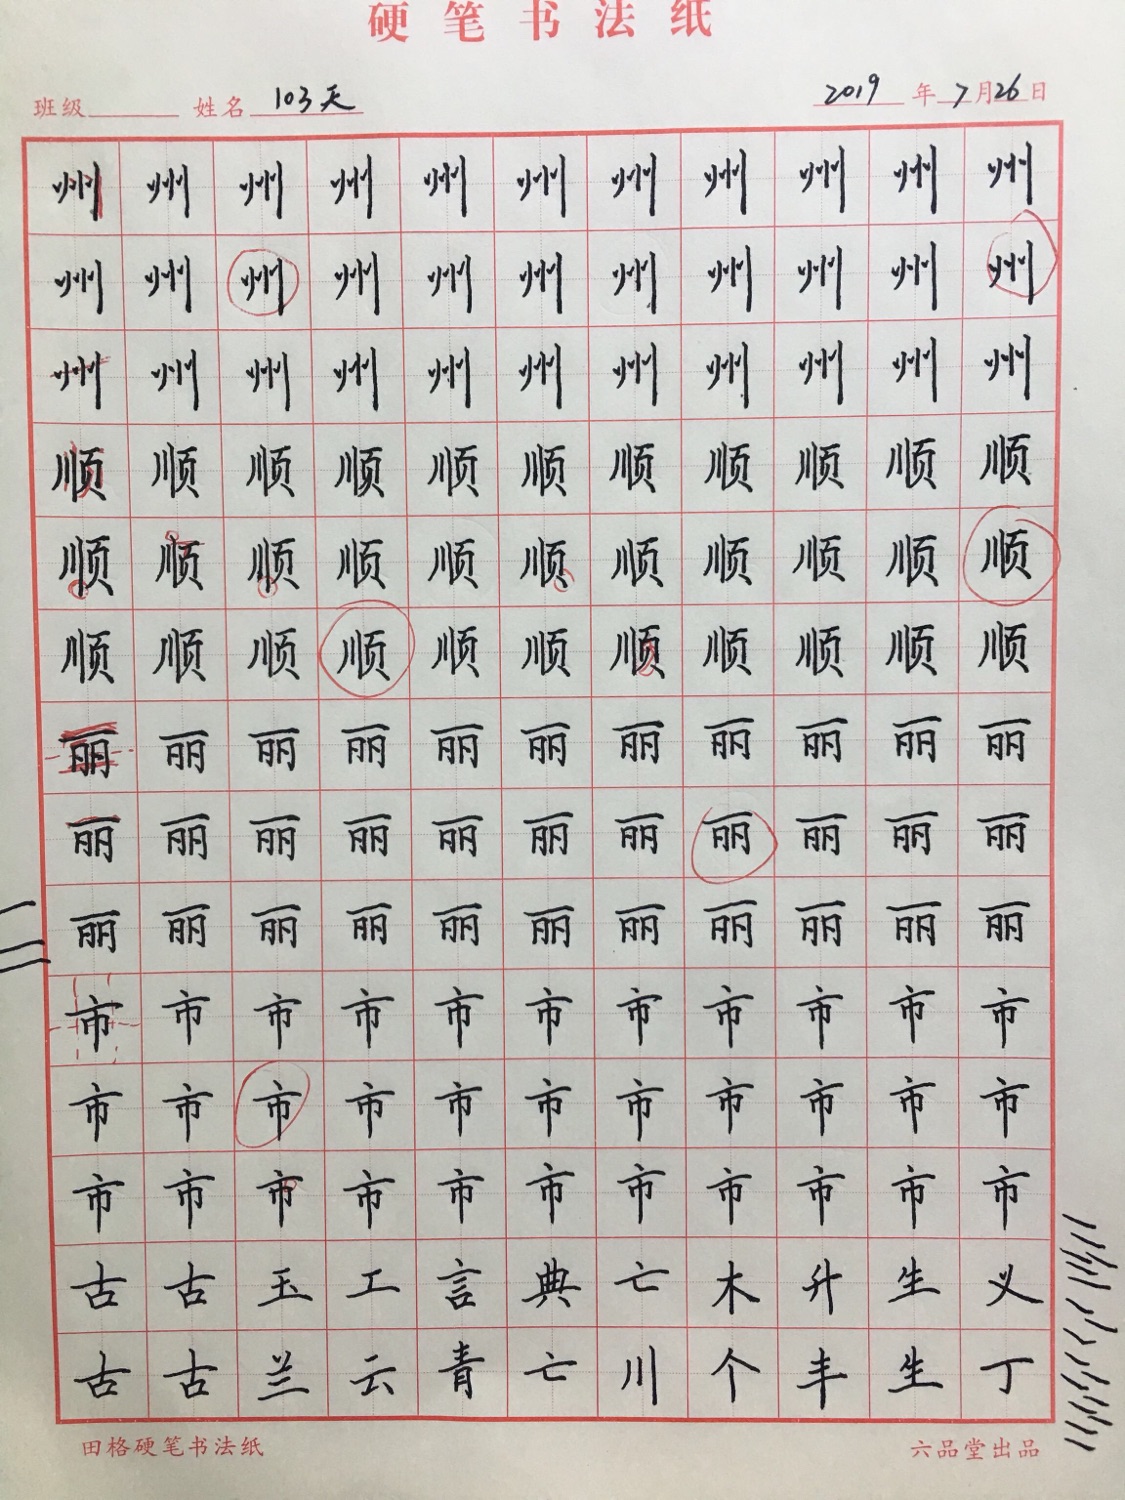 硬笔书法纸
班级 姓名 103天 2019年7月26日
州州州州州州州州州州州
州州州州州州州州州州州
州州州州州州州州州州州
顺顺顺顺顺顺顺顺顺顺顺
顺顺顺顺顺顺顺顺顺顺顺
顺顺顺顺顺顺顺顺顺顺顺
丽丽丽丽丽丽丽丽丽丽丽
丽丽丽丽丽丽丽丽丽丽丽
丽丽丽丽丽丽丽丽丽丽丽
市市市市市市市市市市市
市市市市市市市市市市市
市市市市市市市市市市市
古古玉工言典亡木升生义
古古兰云青亡川个丰生丁
田格硬笔书法纸 六品堂出品